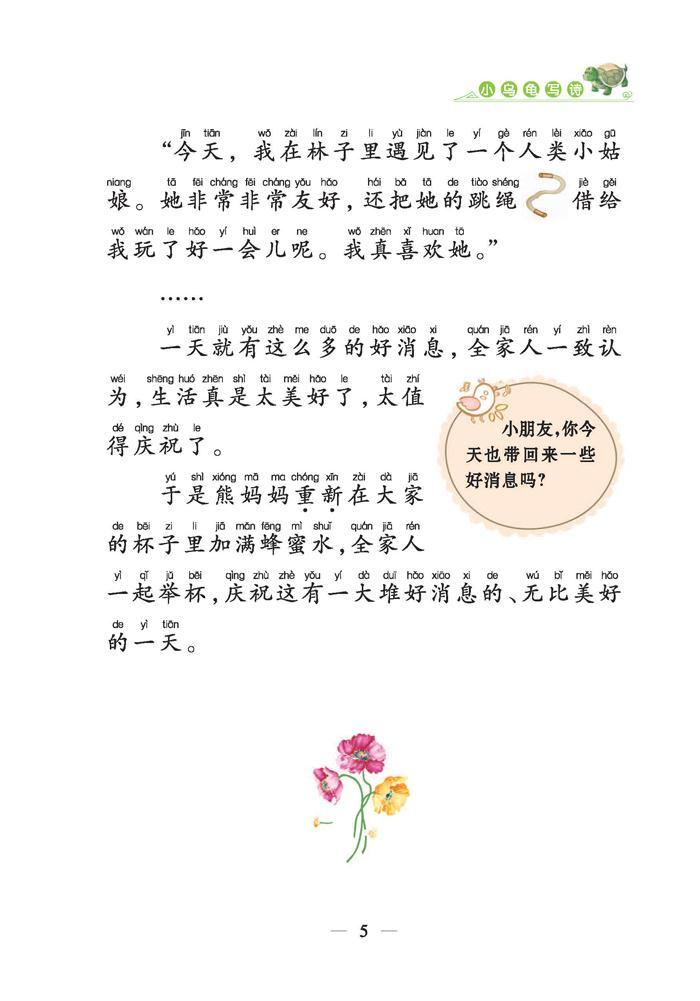 小乌龟写诗
jīn tiān wǒ zài lín zi li yù jiàn le yí gè rén lèi xiǎo gū
“今天，我在林子里遇见了一个人类小姑
niang tā fēi cháng fēi cháng yǒu hǎo hái bǎ tā de tiào shéng jiè gěi
娘。她非常非常友好，还把她的跳绳借给
wǒ wán le hǎo yí huì er ne wǒ zhēn xǐ huan tā
我玩了好一会儿呢。我真喜欢她。”
……
yì tiān jiù yǒu zhè me duō de hǎo xiāo xi quán jiā rén yí zhì rèn
一天就有这么多的好消息，全家人一致认
wéi shēng huó zhēn shì tài měi hǎo le tài zhí
为，生活真是太美好了，太值
dé qìng zhù le
得庆祝了。
小朋友，你今
天也带回来一些
好消息吗？
yú shì xióng mā ma chóng xīn zài dà jiā
于是熊妈妈重新在大家
de bēi zi li jiā mǎn fēng mì shuǐ quán jiā rén
的杯子里加满蜂蜜水，全家人
yì qǐ jǔ bēi qìng zhù zhè yǒu yí dà duī hǎo xiāo xi de wú bǐ měi hǎo
一起举杯，庆祝这有一大堆好消息的、无比美好
de yì tiān
的一天。
5